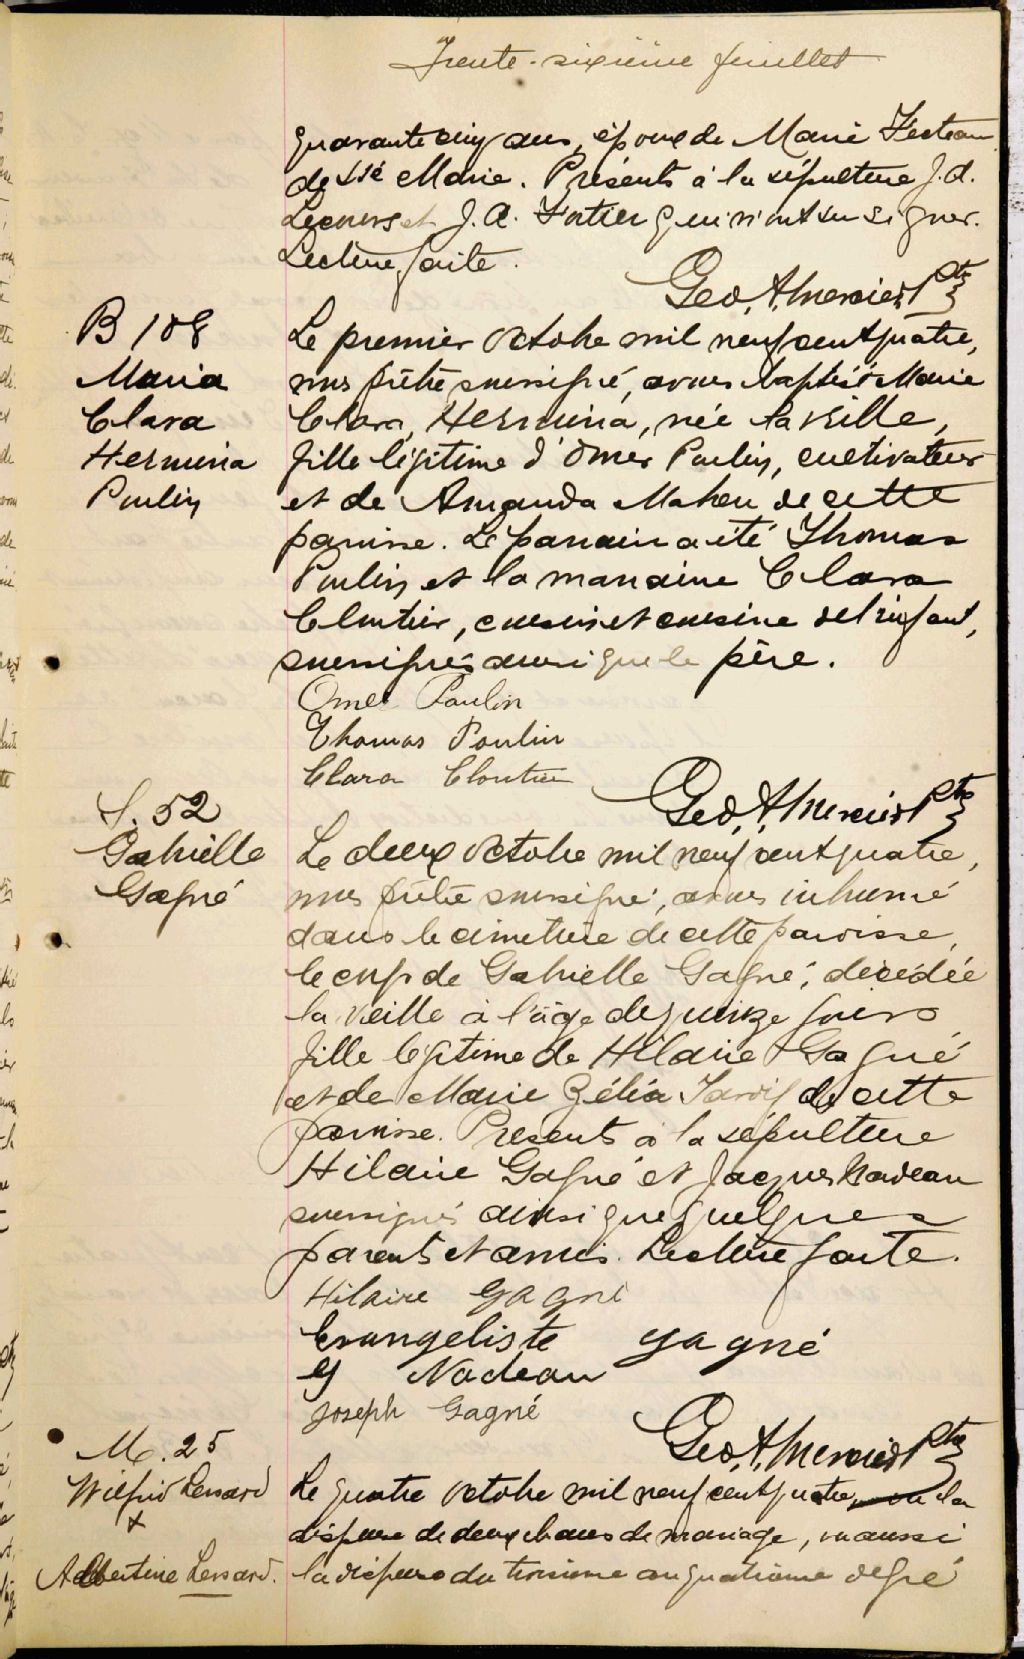 Trente-sixième feuillet
quarante cinq ans, époux de Marie Fecteau
de Ste Marie. Présents à la sépulture J. A.
Lecours et J. A. Fortier qui n'ont su signer.
Lecture faite.
Geo. A. Mercier Ptre
B 108
Maria
Clara
Hermina
Poulin
Le premier Octobre mil neuf cent quatre,
nous prêtre soussigné, avons baptisé Marie
Clara, Hermina, née la veille,
fille légitime d'Omer Poulin, cultivateur
et de Amanda Maheu de cette
paroisse. Le parrain a été Thomas
Poulin et la marraine Clara
Cloutier, cousin et cousine de l'enfant,
soussignés ainsi que le père.
Omer Poulin
Thomas Poulin
Clara Cloutier
Geo. A. Mercier Ptre
S. 52
Gabrielle
Gagné
Le deux Octobre mil neuf cent quatre,
nous prêtre soussigné, avons inhumé
dans le cimetière de cette paroisse,
le corps de Gabrielle Gagné, décédée
la veille à l'âge de quinze jours
fille légitime de Hilaire Gagné
et de Marie Zélia Tardif de cette
paroisse. Présents à la sépulture
Hilaire Gagné et Jacques Nadeau
soussignés ainsi que quelques
parents et amis. Lecture faite.
Hilaire Gagné
Evangeliste Gagné
J Nadeau
Joseph Gagné
Geo. A. Mercier Ptre
M. 25
Wilfrid Lessard
&
Albertine Lessard.
Le quatre Octobre mil neuf cent quatre, vu la
dispense de deux bans de mariage, vu aussi
la dispense du troisième au quatrième degré